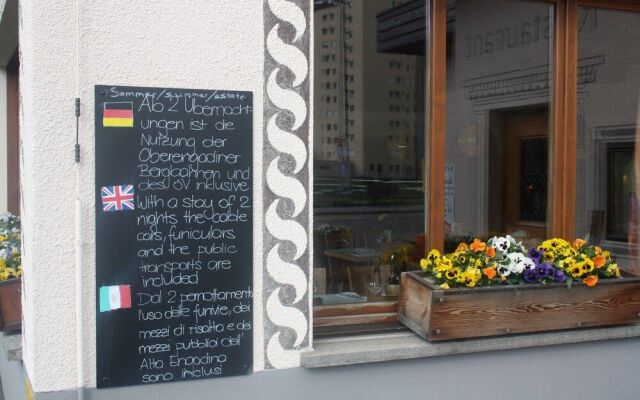 Sommer/summer/estate
Ab 2 Übernacht-
ungen ist die
Nutzung der
Oberengadiner
Bergbahnen und
des ÖV inklusive
With a stay of 2
nights the cable
cars, funiculars
and the public
transports are
included
Dal 2 pernottamento
l'uso delle funvie, dei
mezzi di risalita e dei
mezzi pubblici dell'
Alta Engadina
sono inclusi
Restaurant